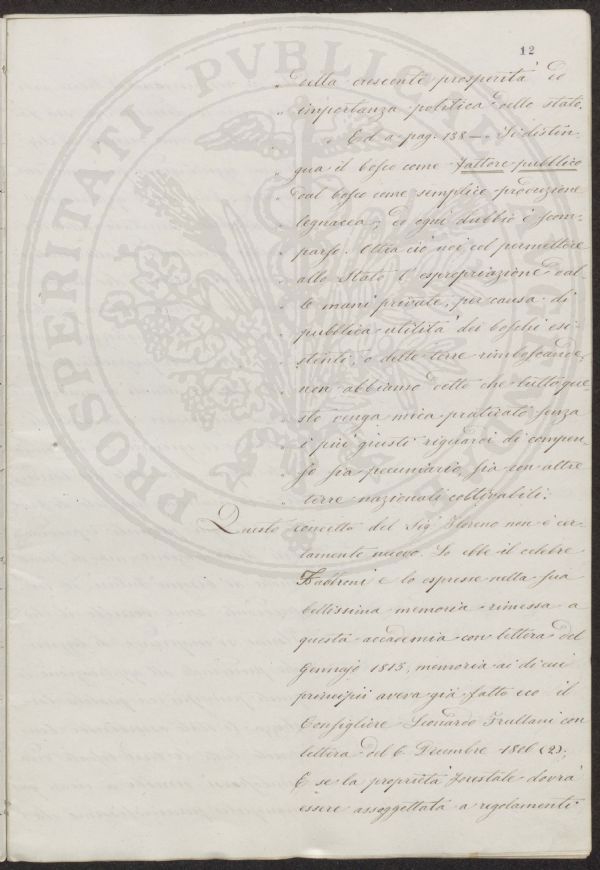 12
" della crescente prosperità ed
" importanza politica dello stato.
" Ed a pag. 138 — „ Si distin-
" gua il bosco come fattore pubblico
" dal bosco come semplice produzione
" legnacea, ed ogni dubbio è scom-
" parso. Oltra ciò noi col permettere
" allo Stato l'espropriazione dal
" le mani private, per causa di
" pubblica utilità dei boschi esi-
" stenti, o delle terre rimboscande,
" non abbiamo detto che tutto que
" sto venga mica praticato senza
" i più giusti riguardi di compen-
" so sia pecuniario, sia con altre
" terre nazionali coltivabili.
Questo concetto del Sig. Floreno non è cer-
tamente nuovo. Lo ebbe il celebre
Fabbroni e lo espresse nella sua
bellissima memoria rimessa a
questa accademia con lettera del
Gennajo 1815, memoria ai di cui
principii aveva già fatto eco il
Consigliere Leonardo Frullani con
lettera del 6 Decembre 18 (2).
E se la proprietà forestale dovrà
essere assoggettata a regolamenti
PROSPERITATI PVBLICAE